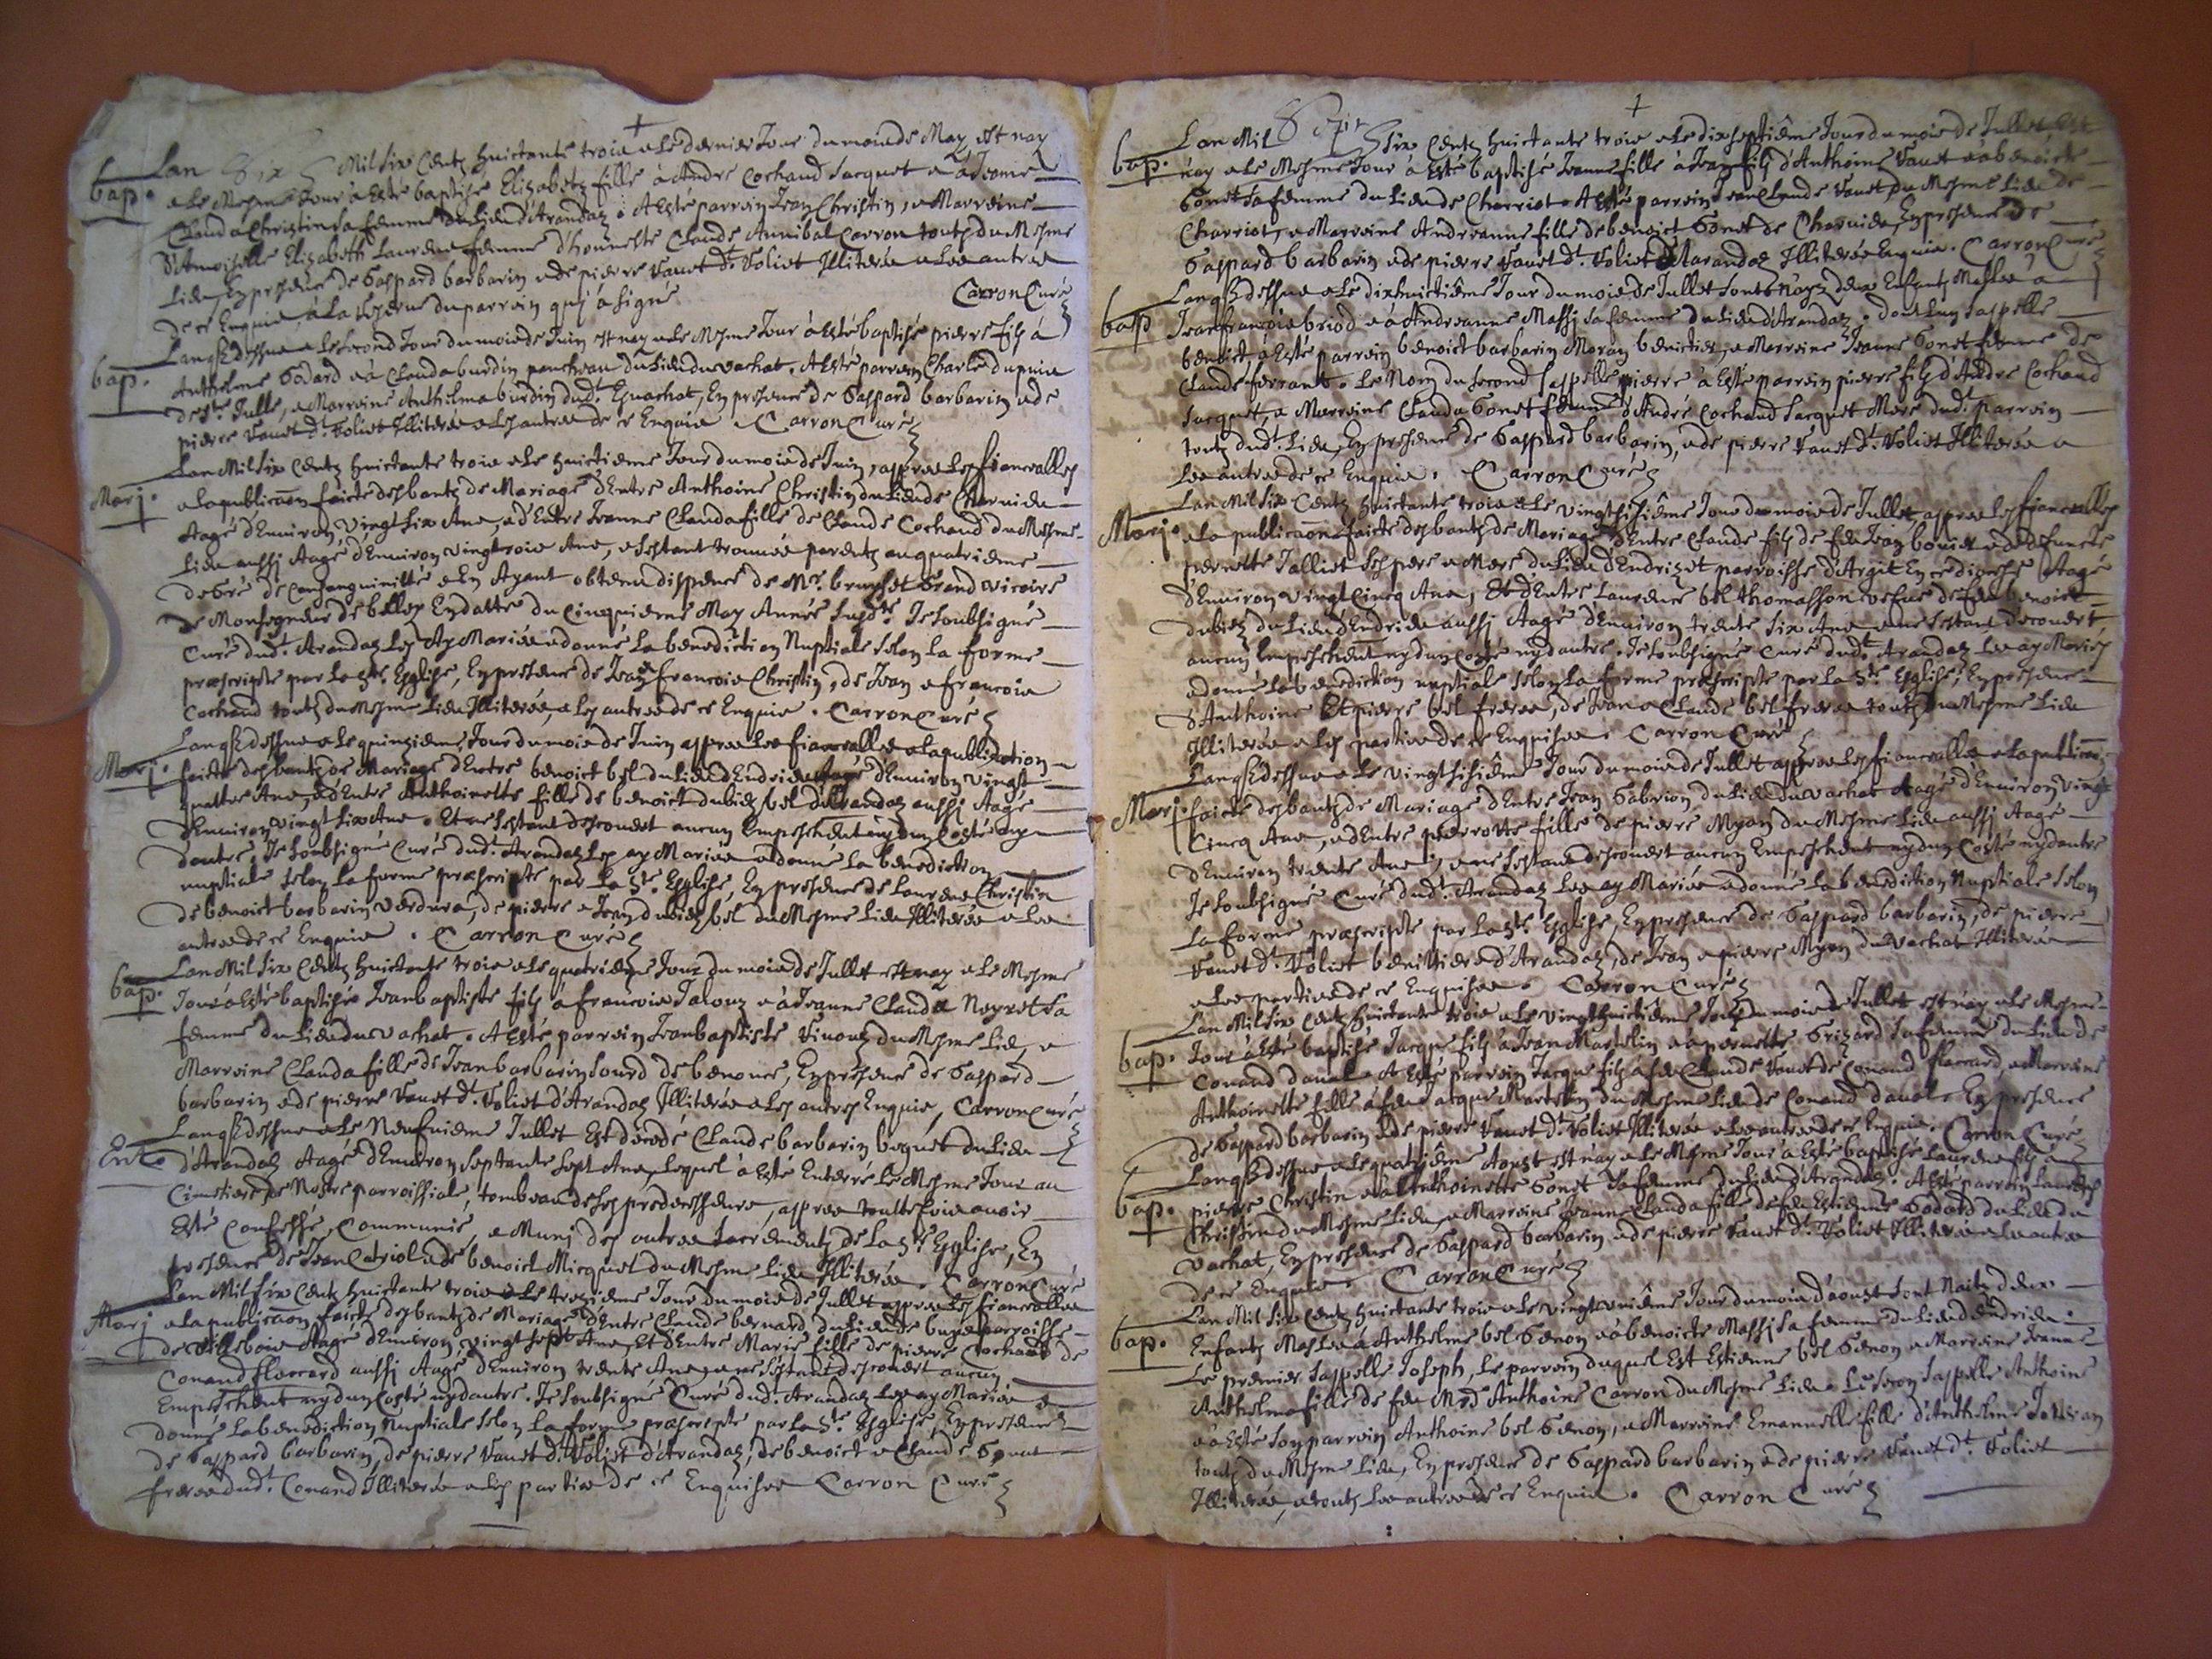 +
bap. Lan Six Mil six Centz huictante trois & le dernier Jour du mois de May est nay
& le Mesme Jour à Esté baptisée Elizabetz fille à André Cochand Jacquet & à Jeanne
Clauda Christin sa femme du lieu d'Arandaz. A Esté parrein Jean Christin, & Marreine
d'Amoiselle Elizabeth Laurens femme d'honneste Claude Annibal Carron toutz du Mesme
lieu, En presence de Gaspard barbarin & de pierre Vanet dt. Voliet Illiterés & les autres
de ce Enquis, à la reserve du parrein quj à signé Carron Curé
bap. Lan que dessus & le second Jour du mois de Juin est nay & le Mesme Jour à esté baptisé pierre fils à
Anthelme Godard & à Clauda burdin pancheau du lieu du vachat. A Esté parrein Charle dupuis
de Ste. Julle, & Marreine Anthelma burdin dudt. Evachat, En presence de Gaspard barbarin & de
pierre Vanet dt. Voliet Illiterés & les autres de ce Enquis. Carron Curé
Marj. Lan Mil six Centz huictante trois & le huictieme Jour du mois de Juin, appres les fiancallies
& la publicaon faicte des bantz de Mariage d'Entre Anthoine Christin du lieu de Charvieu
Aagé d'Environ vingt six Ans, & d'Entre Jeanne Clauda fille de Claude Cochand du Mesme
lieu aussj Aagé d'Environ vingt trois Ans, & s'estant trouvés parentz au quatrieme
degré de consanguinitté & En Ayant obtenu dispence de Mr. Grand vicaire
de Monsegneur de belley En datte du cinquieme May Année susdte. Je soubsigné
Curé dudt. Arandaz les Ay Mariés & donné la benediction Nuptiale selon la forme
præscripte par la Ste. Esglise, En presence de Jean & Francois Christin, de Jean & Francois
Cochand toutz du Mesme lieu Illiterés, & les autres de ce Enquis. Carron Curé
Marj. Lan que dessus & le quinzieme Jour du mois de Juin appres les fiancallies & la publication
faicte des bantz de Mariage d'Entre benoict bel du lieu d'Endrieu Aagé d'Environ vingt
quattre Ans, & d'Entre Anthoinette fille de benoict dubiez bel d'Arandaz aussj Aagé
d'Environ vingt six Ans. Et ne s'estant descouvert aucun Empeschement ny dun Costé ny
dautre, Je soubsigné Curé dudt. Arandaz les ay Mariés & donné la benediction
nuptiale selon la forme præscripte par la Ste. Esglise, En presence de Laurens Christin
de benoict barbarin verdura, de pierre & Jean dubiez bel du Mesme lieu Illiterés & les
autres de ce Enquis. Carron Curé
bap. Lan Mil six Centz huictante trois & le quatrieme Jour du mois de Jullet est nay & le Mesme
Jour à Esté baptisé Jeanbaptiste fils à francois Jalouz & à Jeanne Clauda Neyret sa
femme du lieu du vachat. A Esté parrein Jeanbaptiste Vinouz du Mesme lieu, &
Marreine Clauda fille de Jean barbarin sourd de benonce, En presence de Gaspard
barbarin & de pierre Vanet dt. Voliet d'Arandaz Illiterés & les autres Enquis, Carron Curé
Ent. Lan que dessus & le Neufvieme Jullet Est décedé Claude barbarin boquet du lieu
d'Arandaz Aagé d'Environ septante sept Ans, lequel à Esté Enterré le Mesme Jour au
Cimetiere de Nostre parroissiale, tombeau de ses predecesseurs, appres touttefois avoir
Esté Confessé, Communié, & Munj des autres sacrements de la Ste. Esglise, En
presence de Jean Catriol & de benoict Micquel du Mesme lieu Illiterés. Carron Curé
Marj Lan Mil six Centz huictante trois & le trezieme Jour du mois de Jullet appres les fiancallies
& la publicaon faicte des bantz de Mariage d'Entre Claude bernard du lieu de parroisse
de Villebois Aagé d'Environ vingt sept Ans, Et d'Entre Marie fille de pierre Cochand de
Conand flaccard aussj Aagé d'Environ trente Ans, & ne s'estant descouvert aucun
Empeschement ny dun Costé ny dautre. Je soubsigné Curé dudt. Arandaz les ay Mariés &
donné la benediction Nuptiale selon la forme præscripte par la Ste. Esglise, En presence
de Gaspard barbarin, de pierre Vanet dt. Voliet d'Arandaz, de benoict & Claude Gonet
freres dudt. Conand Illiterés & les parties de ce Enquises Carron Curé
+
bap. Lan Mil Sept six Centz huictante trois & le dix septième Jour du mois de Jullet Est
nay & le Mesme Jour à Esté baptisée Jeanne fille à Jean fils d'Anthoine Vanet & à benoicte
Gonet sa femme du lieu de Charriot. A Esté parrein Jean Claude Vanet du Mesme lieu de
Charriot, & Marreine Andreanne fille de benoict Gonet de Charvieu, En presence de
Gaspard barbarin & de pierre Vanet dt. Voliet d'Arandaz Illiterés Enquis. Carron Curé
bap Lan que dessus & le dixhuictième Jour du mois de Jullet sont nays deux Enfants Masles à
Jean francois briod & à Andreanne Massj sa femme du lieu d'Arandaz. dont lun sappelle
benoict à Esté parrein benoict barbarin Moran benictier, & Marreine Jeanne Gonet femme de
Claude ferrant. Le Nom du second sappelle pierre à Esté parrein pierre fils d'André Cochand
Jacquet, & Marreine Clauda Gonet femme d'André Cochand Jacquet Mere dudt. parrein
toutz dudt. lieu, En presence de Gaspard barbarin, & de pierre Vanet dt. Voliet Illiterés &
les autres de ce Enquis. Carron Curé
Marj. Lan Mil six Centz huictante trois & le vingtsisième Jour du mois de Jullet, appres les fiancallies
& la publicaon faicte des bantz de Mariage d'Entre Claude fils de feu Jean bovier & de defuncte
pernette Jalliet ses pere & Mere du lieu d'Endrizet parroisse d'Argit En ce dioecese Aagé
d'Environ vingt Cincq Ans, Et d'Entre Laurence bel thomasson vefve de feu benoict
dubiez du lieu d'Endrieu aussj Aagé d'Environ trente six Ans & ne s'estant descouvert
aucun Empeschement ny dun Costé ny dautre. Je soubsigné Curé dudt. Arandaz les ay Mariés
& donné la benediction nuptiale selon la forme præscripte par la Ste. Esglise, En presence
d'Anthoine Et pierre bel freres, de Jean & Claude bel freres toutz du Mesme lieu
Illiterés & les parties de ce Enquises. Carron Curé
Marj. Lan que dessus & le vingtsisième Jour du mois de Jullet appres les fiancallies & la publicaon
faicte des bantz de Mariage d'Entre Jean Gabrion du lieu du vachat Aagé d'Environ vingt
Cincq Ans, & d'Entre pierrotte fille de pierre Myon du Mesme lieu aussj Aagé
d'Environ trente Ans, & ne s'estant descouvert aucun Empeschement ny dun Costé ny dautre
Je soubsigné Curé dudt. Arandaz les ay Mariés & donné la benediction Nuptiale selon
la forme præscripte par la Ste. Esglise, En presence de Gaspard barbarin, de pierre
Vanet dt. Voliet benittiers d'Arandaz, de Jean & pierre Myon du vachat Illiterés
& les parties de ce Enquises. Carron Curé
bap. Lan Mil six Centz huictante trois & le vingthuictième Jour du mois de Jullet est nay & le Mesme
Jour à Esté baptisé Jacque fils à Jean Martelin & à pernette Grizard sa femme du lieu de
Conand daval. A Esté parrein Jacque fils à feu Claude Vanet de Conand flaccard, & Marreine
Anthoinette fille à feu Jacque Martelin du Mesme lieu de Conand daval. En presence
de Gaspard barbarin & de pierre Vanet dt. Voliet Illiterés & les autres de ce Enquis. Carron Curé
bap. Lan que dessus & le quatrieme Aoust est nay & le Mesme Jour à Esté baptisé Laurens fils à
pierre Christin & à Anthoinette Gonet sa femme du lieu d'Arandaz. A Esté parrein Laurens
Christin du Mesme lieu, & Marreine Jeanne Clauda fille de feu Estienne Godard du lieu du
vachat, En presence de Gaspard barbarin & de pierre Vanet dt. Voliet Illiterés & les autres
de ce Enquis. Carron Curé
bap. Lan Mil six Centz huictante trois & le vingt unième Jour du mois d'Aoust sont Naitz deux
Enfantz Masles à Anthelme bel Genon & à benoicte Massj sa femme du lieu d'Endrieu.
Le premier sappelle Joseph, le parrein duquel Est Estienne bel Genon & Marreine Jeanne
Anthelma fille de feu Mre Anthoine Carron du Mesme lieu. Le second sappelle Anthoine
& à Esté son parrein Anthoine bel Genon, & Marreine Emanuelle fille d'Anthelme
toutz du Mesme lieu, En presence de Gaspard barbarin & de pierre Vanet dt. Voliet
Illiterés, & toutz les autres de ce Enquis. Carron Curé